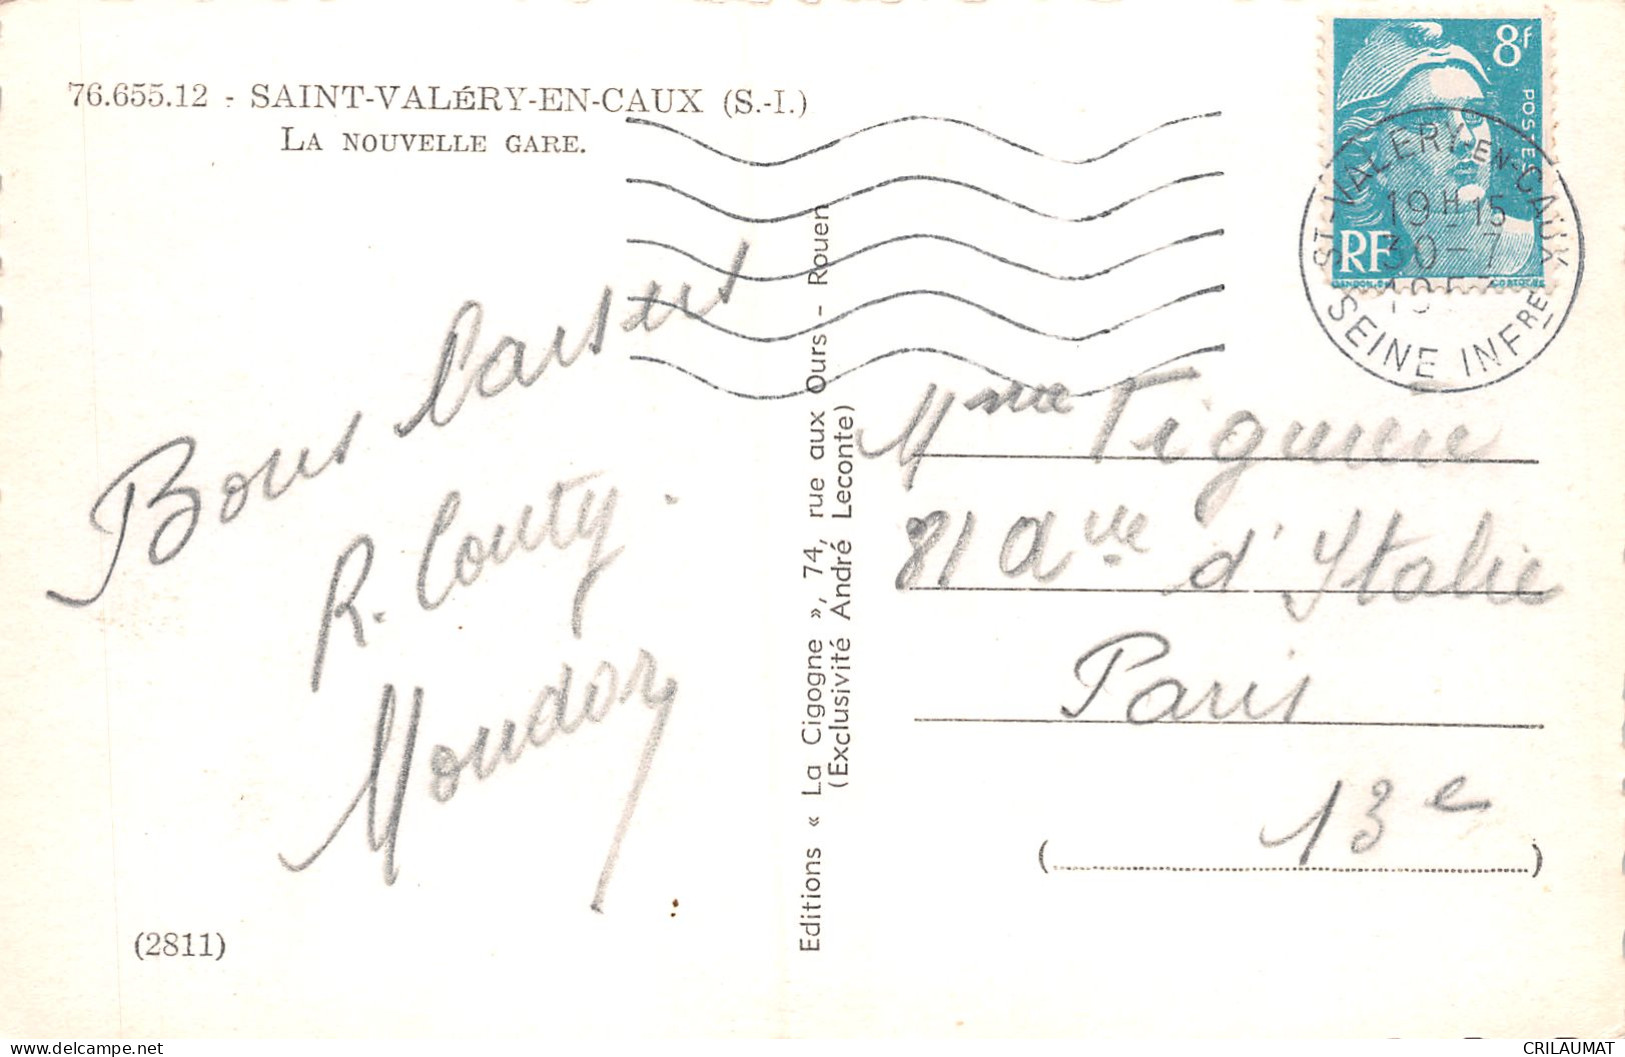 76.655.12 - SAINT-VALÉRY-EN-CAUX (S.-I.)
LA NOUVELLE GARE.
8f
POSTES
RF
ST-VALERY-EN-CAUX
19H15
30-7
SEINE INFRE
Bons
R. Couty.
(2811)
Editions « La Cigogne », 74, rue aux Ours - Rouen
(Exclusivité André Leconte)
Mme
81 Ave d'Italie
Paris
13e
CRILAUMAT